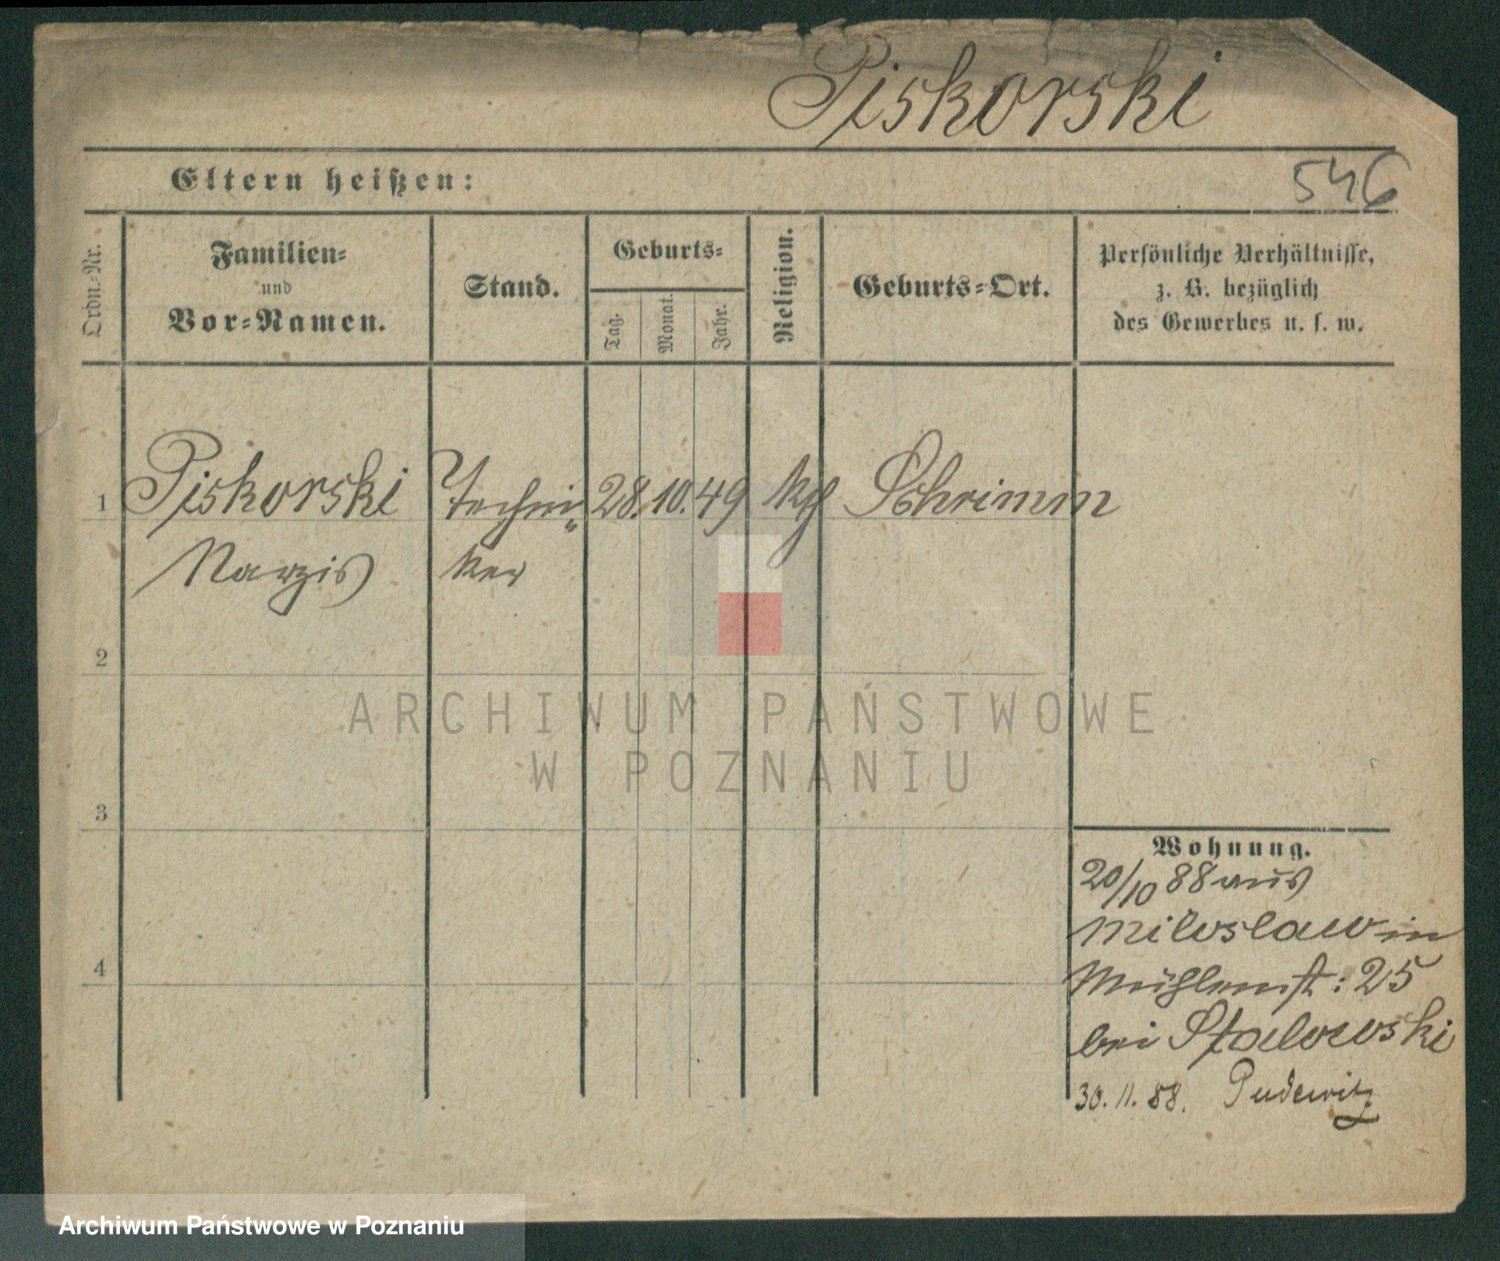 Piskorski
Eltern heißen:
546
Ordn.-Nr.
Familien-
und
Vor-Namen.
Stand.
Geburts-
Tag.
Monat.
Jahr.
Religion.
Geburts-Ort.
Persönliche Verhältnisse,
z. B. bezüglich
des Gewerbes u. s. w.
1 Piskorski Techni- 28. 10. 49 kth Schrimm
Narzis ker
2
ARCHIWUM PAŃSTWOWE
W POZNANIU
3
4
Wohnung.
20/10 88 aus
Miloslaw in
Mühlenst: 25
bei Stalowski
30. 11. 88. Pudewitz
Archiwum Państwowe w Poznaniu